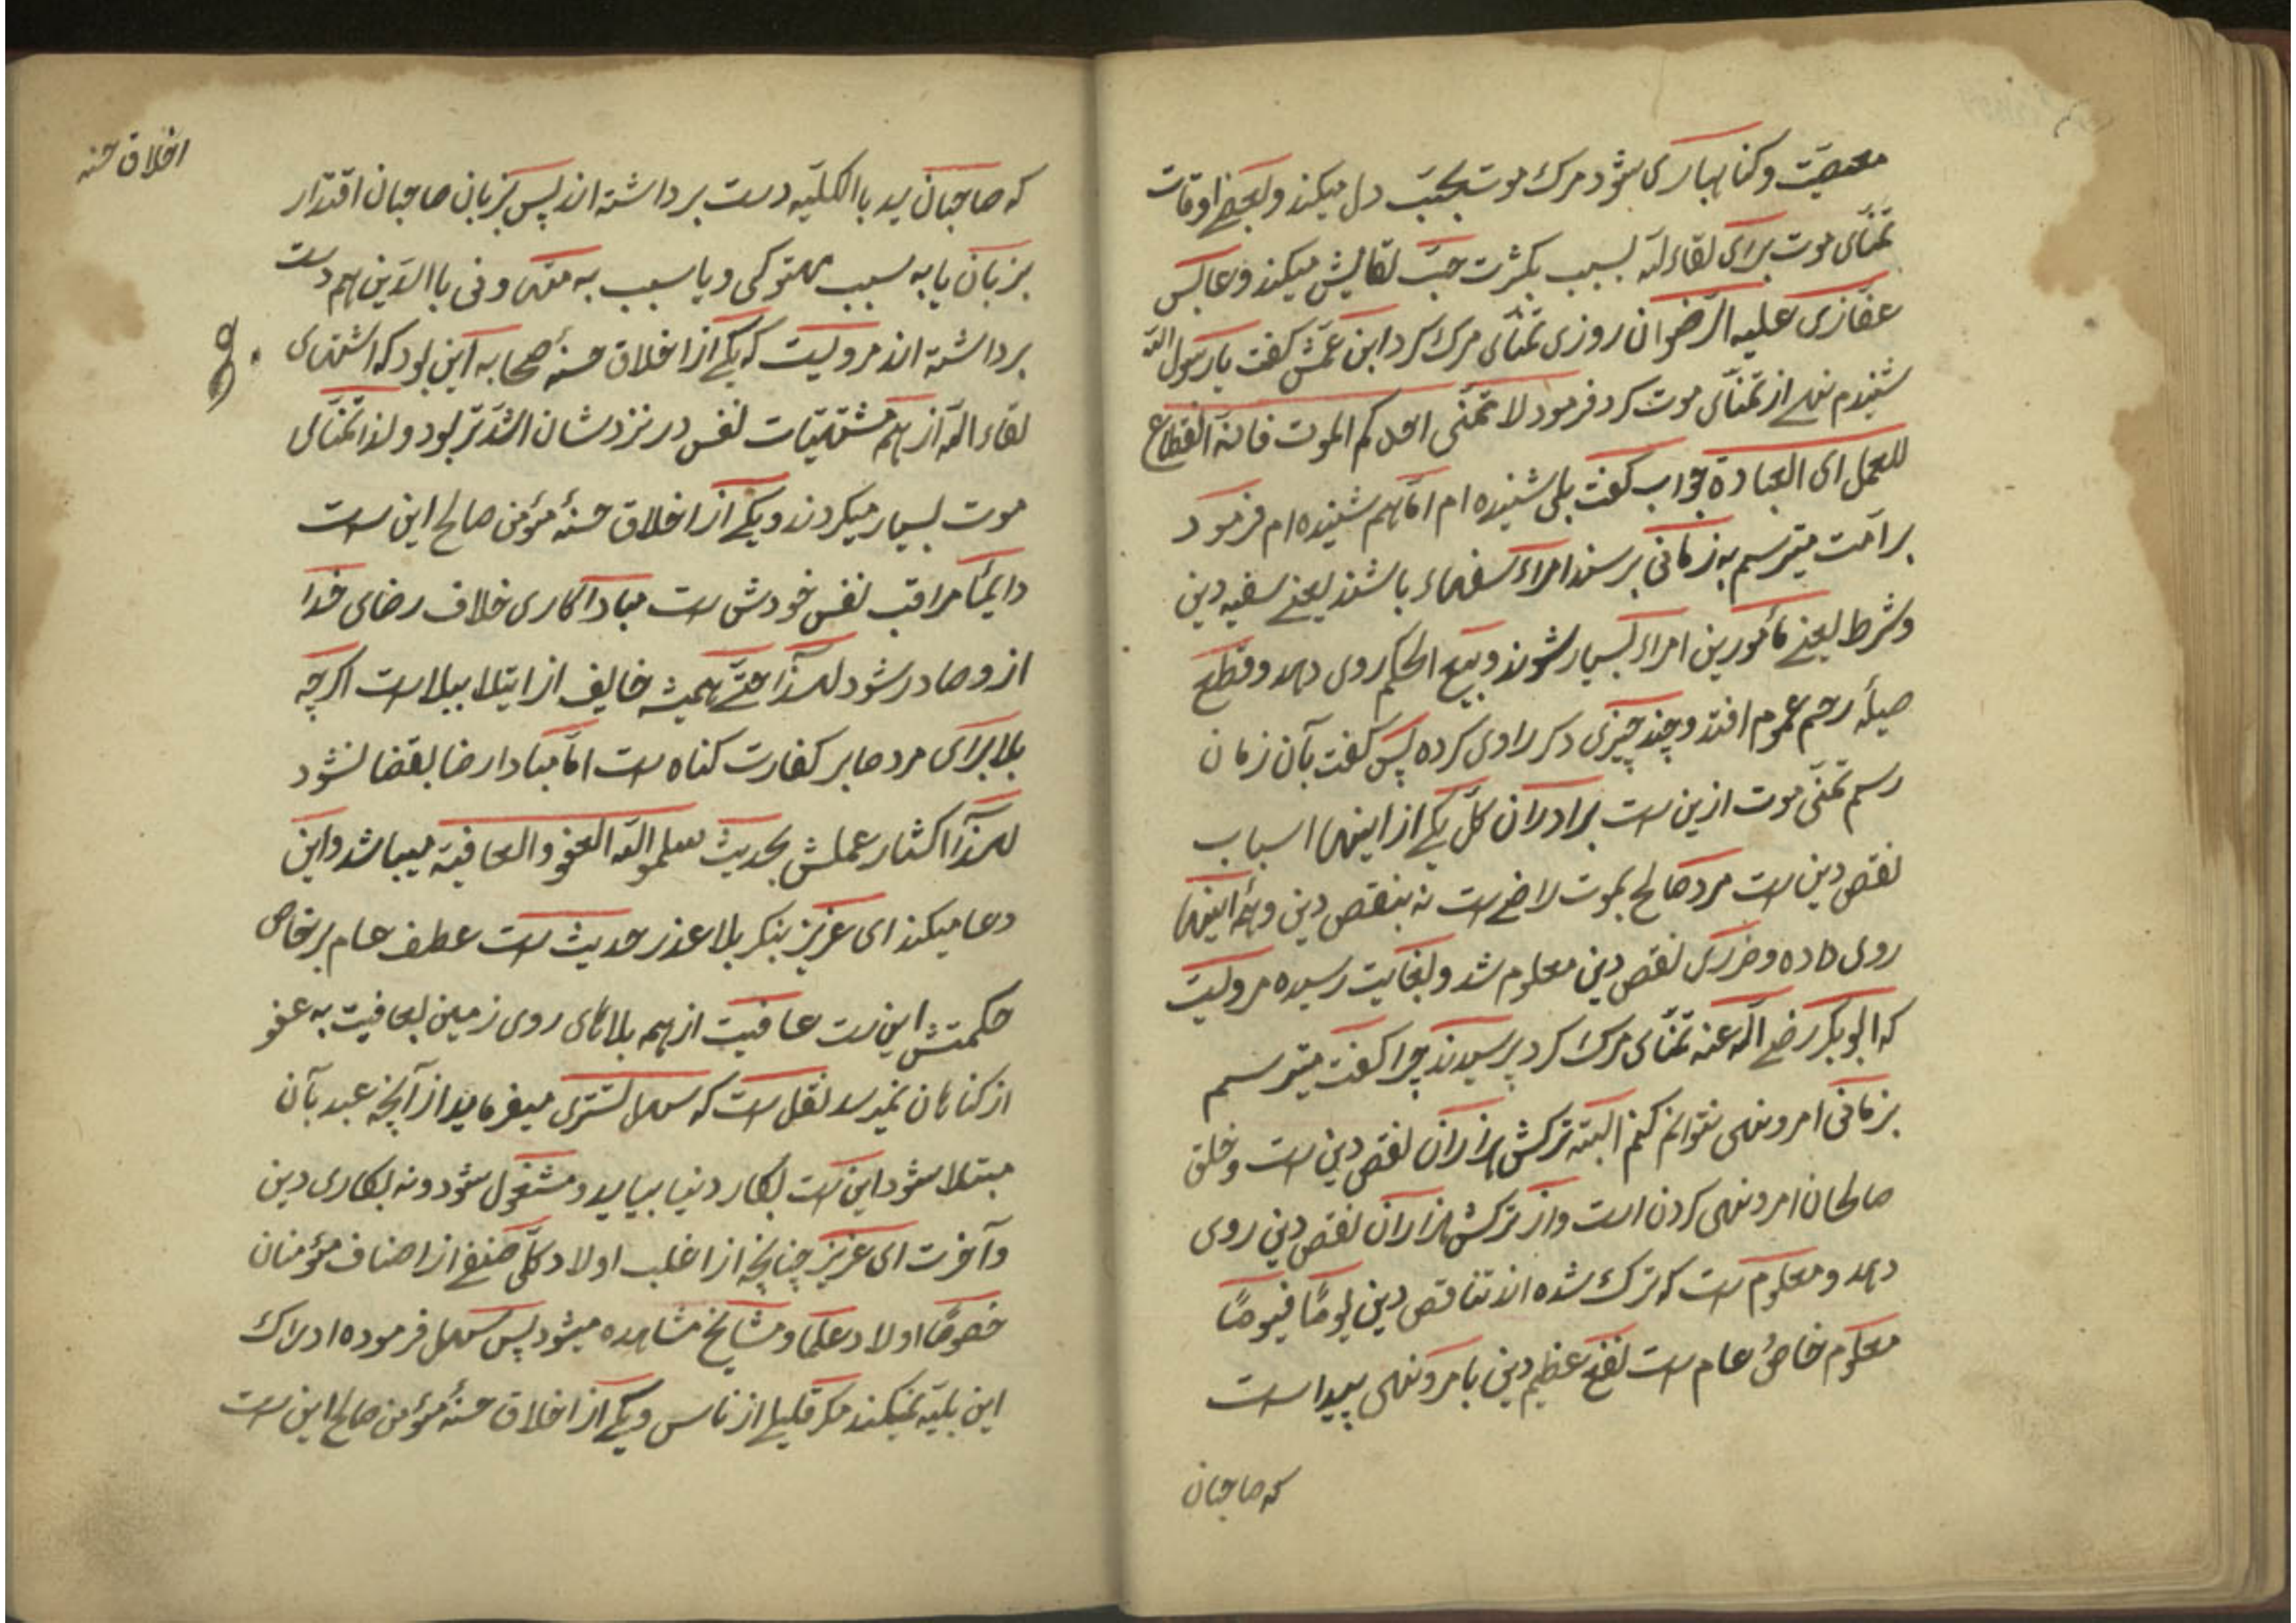 معصیّت و کناهباری شود مرک موت بحبّ دل میکند و بعضے اوقات
تمنّای موت برای لقاء اللّه بسبب بکثرت حبّ لقایش میکند و عابس
عفّازی علیه الرّضوان روزی تمنّای مرک کرد ابن عمّش کفت یا رسول اللّه
شنیدم نهے از تمنّای موت کرد فرمود لا تمنّی احدکم الموت فانّه انقطاع
للعمل ای العبادة جواب کفت بلی شنیده ام امّا هم شنیده ام فرمود
بر امّت میترسم به زمانی برسند امراء سفهاء باشند یعنے سفیه دین
و شرط یعنے مأمورین امراء بسیار شوند و بیع الحکم روی دهد و قطع
صیلهٔ رحم عموم افتد و چند چیزی دکر راوی کرده پس کفت بآن زمان
رسم تمنّی موت ازین ست برادران کلّ یکے از اینها اسباب
نقص دین ست مرد صالح بموت راضے ست نه بنقص دین و همهٔ اینها
روی داده و ضرری نقص دین معلوم شد و بغایت رسیده مرویست
که ابوبکر رضے اللّه عنه تمنّای مرک کرد پرسیدند چرا کفت میترسم
بزمانی امر و نهی نتوانم کنم البتّه ترکش هزاران نقص دین ست و خلق
صالحان امر و نهی کردن است و از ترکش هزاران نقص دین روی
دهد و معلوم ست که ترک شده اند تناقص دین یومًا فیومًا
معلوم خاصُ عام ست نفع عظیم دین بامر و نهی پیدا ست
که صاحبان
اخلاق حسنه
که صاحبان ید با الکلیّه دست برداشته اند پس بزبان صاحبان اقتدار
بزبان یا به سبب مهتوکی و یا سبب به متهی و فی با الدّین هم دست
برداشته اند مرویست که یکے از اخلاق حسنهٔ صحابه این بود که اشتهای
لقاء اللّه از همه مشتهیّات نفس در نزدشان اشدّتر بود و لذا تمنّای
موت بسیار میکردند و یکے از اخلاق حسنهٔ مؤمن صالح این ست
دایمًا مراقب نفس خودش ست مبادا کاری خلاف رضای خدا
ازو صادر شود لهذا حتّے همیشه خایف از ابتلا ببلا ست اکرچه
بلا برای مرد صابر کفارت کناه ست امّا مبادا رضا بقضا نشود
لهذا اکثار عملش بحدیث سلموا اللّه العفو و العافیة میباشد و این
دعا میکند ای عزیز بنکر بلا عذر حدیث ست عطف عام بر خاص
حکمتش این ست عافیت از همه بلاهای روی زمین بعافیت به عفو
از کناهان نمیرسد نقل ست که سهل تستری میفرماید از آنچه عبد بآن
مبتلا شود این ست بکار دنیا بیاید و مشغول شود و نه بکاری دین
و آخرت ای عزیز چنانچه از اغلب اولاد کلّ صنفے از اصناف مؤمنان
خصوصًا اولاد علما و مشایخ مشاهده میشود پس سهل فرموده ادراک
این بلیّه نمیکند مکر قلیلے از ناس و یکے از اخلاق حسنهٔ مؤمن صالح این ست